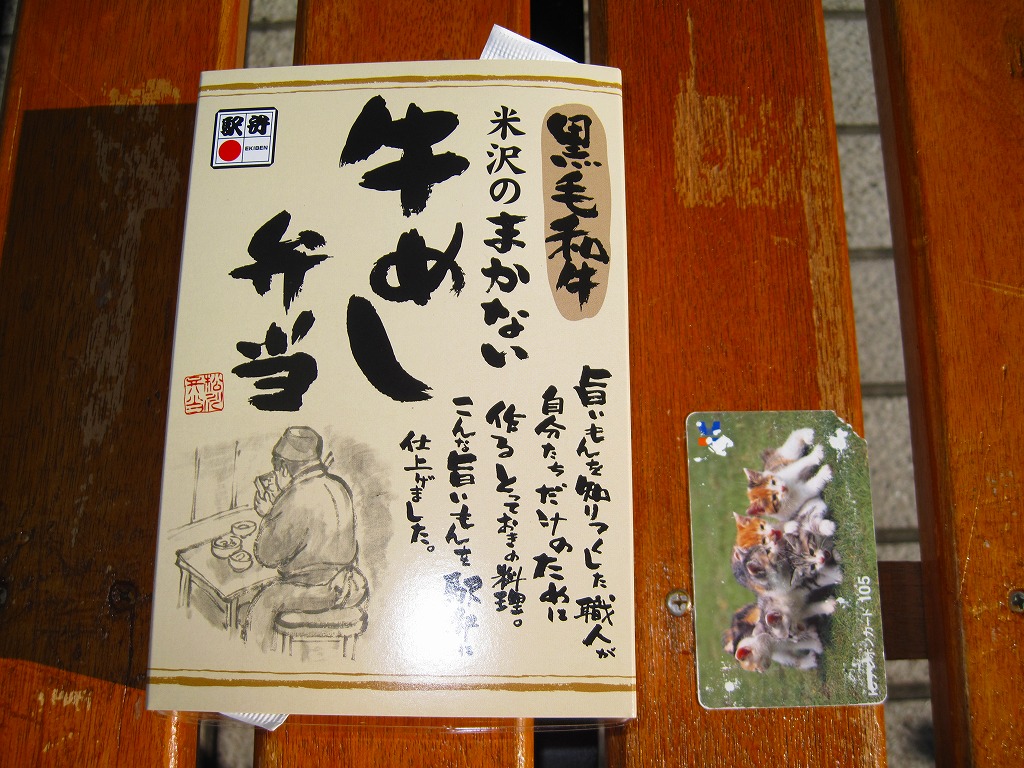 黒毛和牛
米沢のまかない
牛めし
弁当
駅弁
EKIBEN
旨いもんを知りつくした職人が
自分たちだけのたれに
作るとっておきの料理。
こんな旨いもんを駅弁に
仕上げました。
松川
弁当
テレホンカード 105